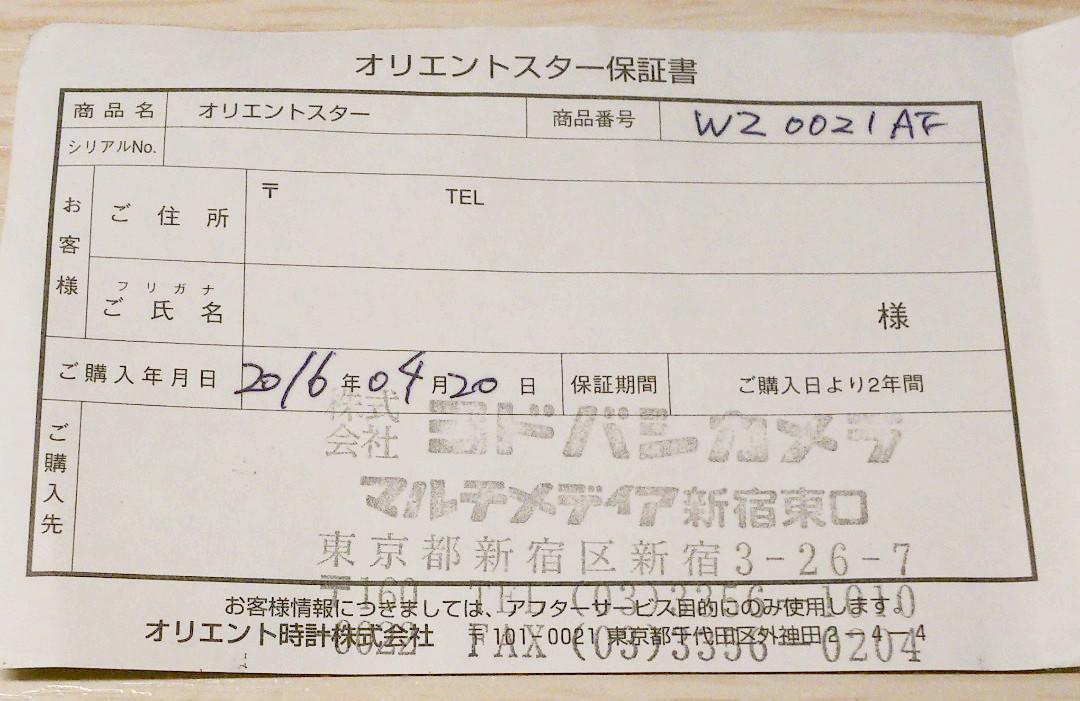 オリエントスター保証書
商品名 オリエントスター 商品番号 WZ0021AF
シリアルNo.
お客様
ご住所 〒 TEL
フリガナ
ご氏名 様
ご購入年月日 2016年04月20日 保証期間 ご購入日より2年間
ご購入先
株式会社 ヨドバシカメラ
マルチメディア新宿東口
東京都新宿区新宿3-26-7
〒160-0022 TEL(03)3356-1010
FAX(03)3356-0204
お客様情報につきましては、アフターサービス目的にのみ使用します。
オリエント時計株式会社 〒101-0021 東京都千代田区外神田2-4-4